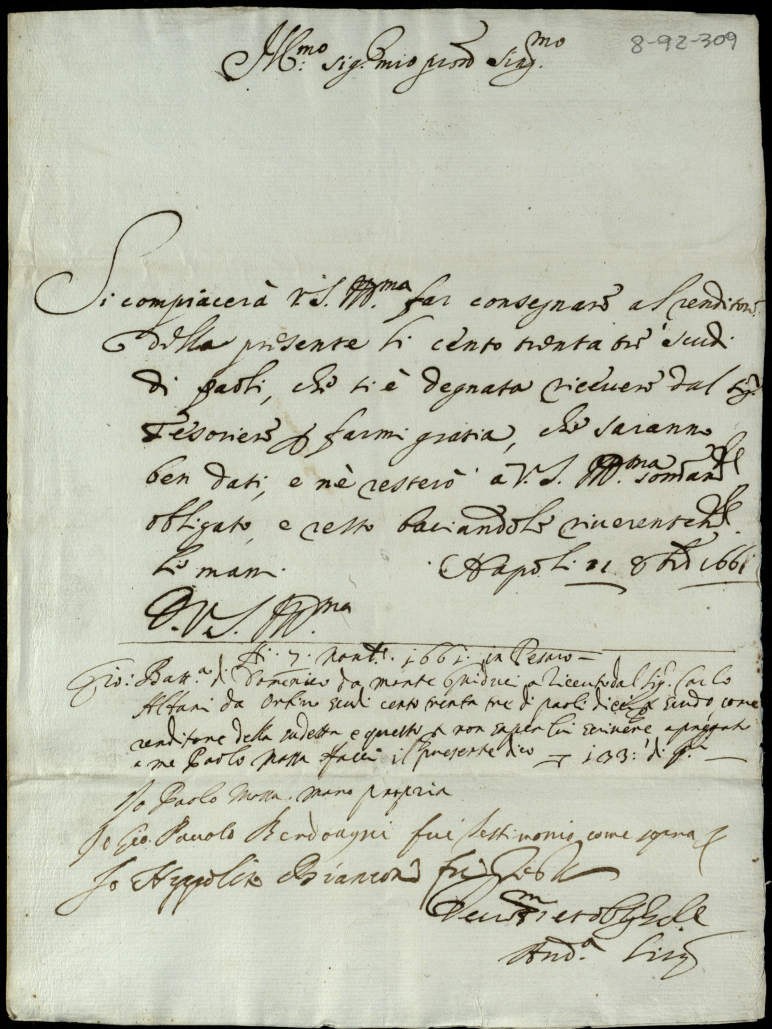 8-92-309
Ill.mo sig.r mio pron Sing.mo
Si compiacerà V.S. Ill.ma far consegnare al renditore
della presente li cento trenta tre scudi
di paoli, che si è degnata ricevere dal sig.r
Tesoriere p farmi gratia, che saranno
ben dati, e nè resterò à V.S. Ill.ma
obligato, e resto baciandole riverentem.te
le mani. Napoli 21 8bre 1661
D. V. S. Ill.ma
A di 7 Nov.e 1661 in Pesaro
Gio: Batt.a di Domenico da monte à riceuto dal Sig. Carlo
Albani da Orbino scudi cento trenta tre di paoli dieci p scudo come
renditore della sudetta e questo p non saper lui scrivere a pregato
a me Paolo Massa facci il presente dico 133: di p.li
Io Paolo Massa mano propria
Io Gio. Pauolo fui testimonio come sopra
Io Hyppolito Bianconi fui
And.a